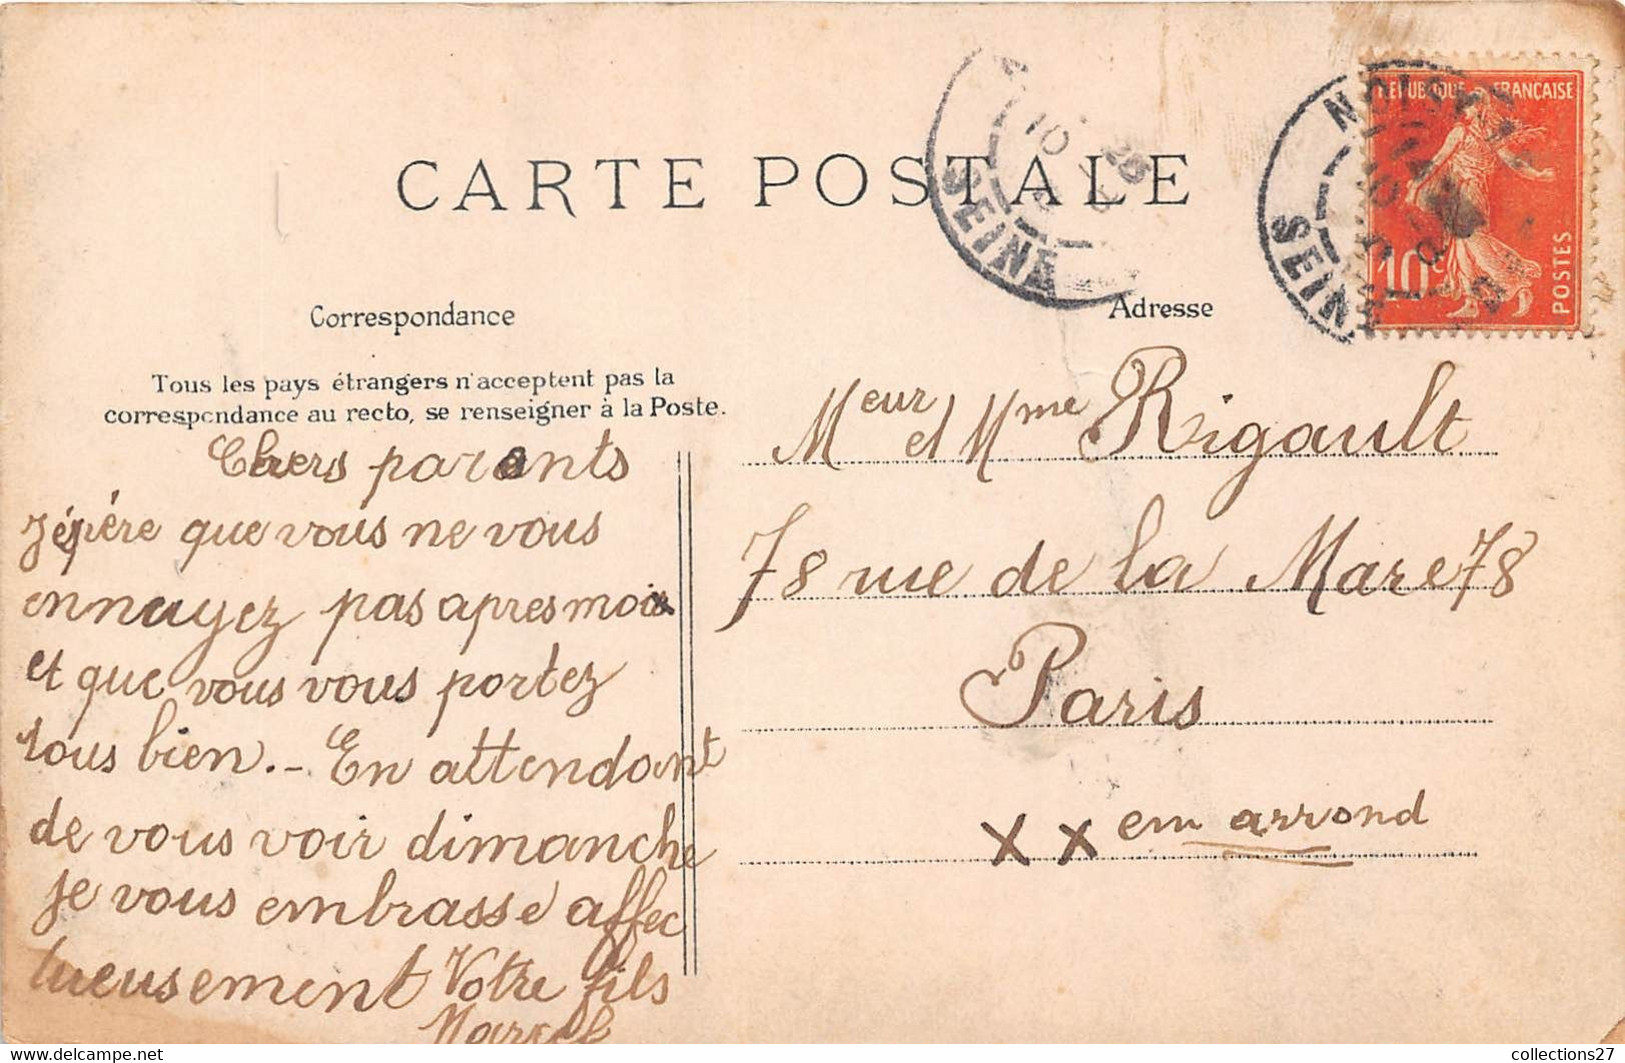 CARTE POSTALE
REPUBLIQUE FRANÇAISE
10c
POSTES
SEINE
SEINE
Correspondance
Adresse
Tous les pays étrangers n'acceptent pas la
correspondance au recto, se renseigner à la Poste.
Chers parents
J'épère que vous ne vous
ennuyez pas apres moi
et que vous vous portez
tous bien. - En attendant
de vous voir dimanche
je vous embrasse affec
tueusement Votre fils
Marcel
Meur et Mme Rigault
78 rue de la Mare 78
Paris
XXem arrond
collections27